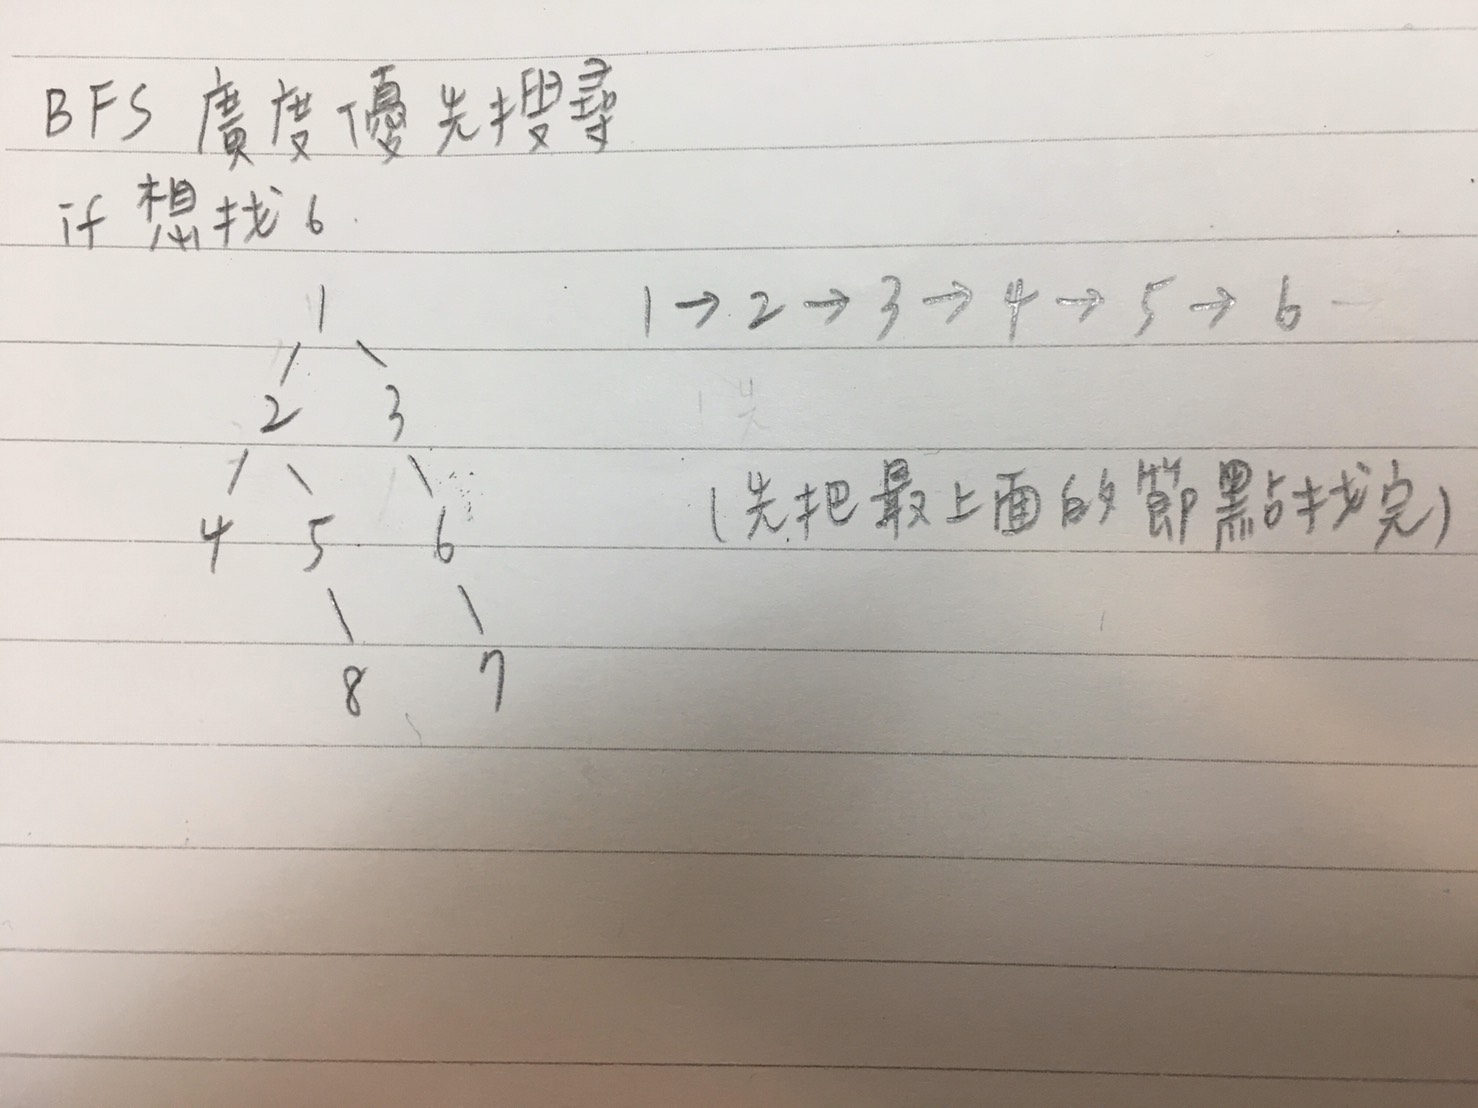 BFS 廣度優先搜尋
if 想找 6
1 → 2 → 3 → 4 → 5 → 6
1
2 3
4 5 6
8 7
(先把最上面的節點找完)